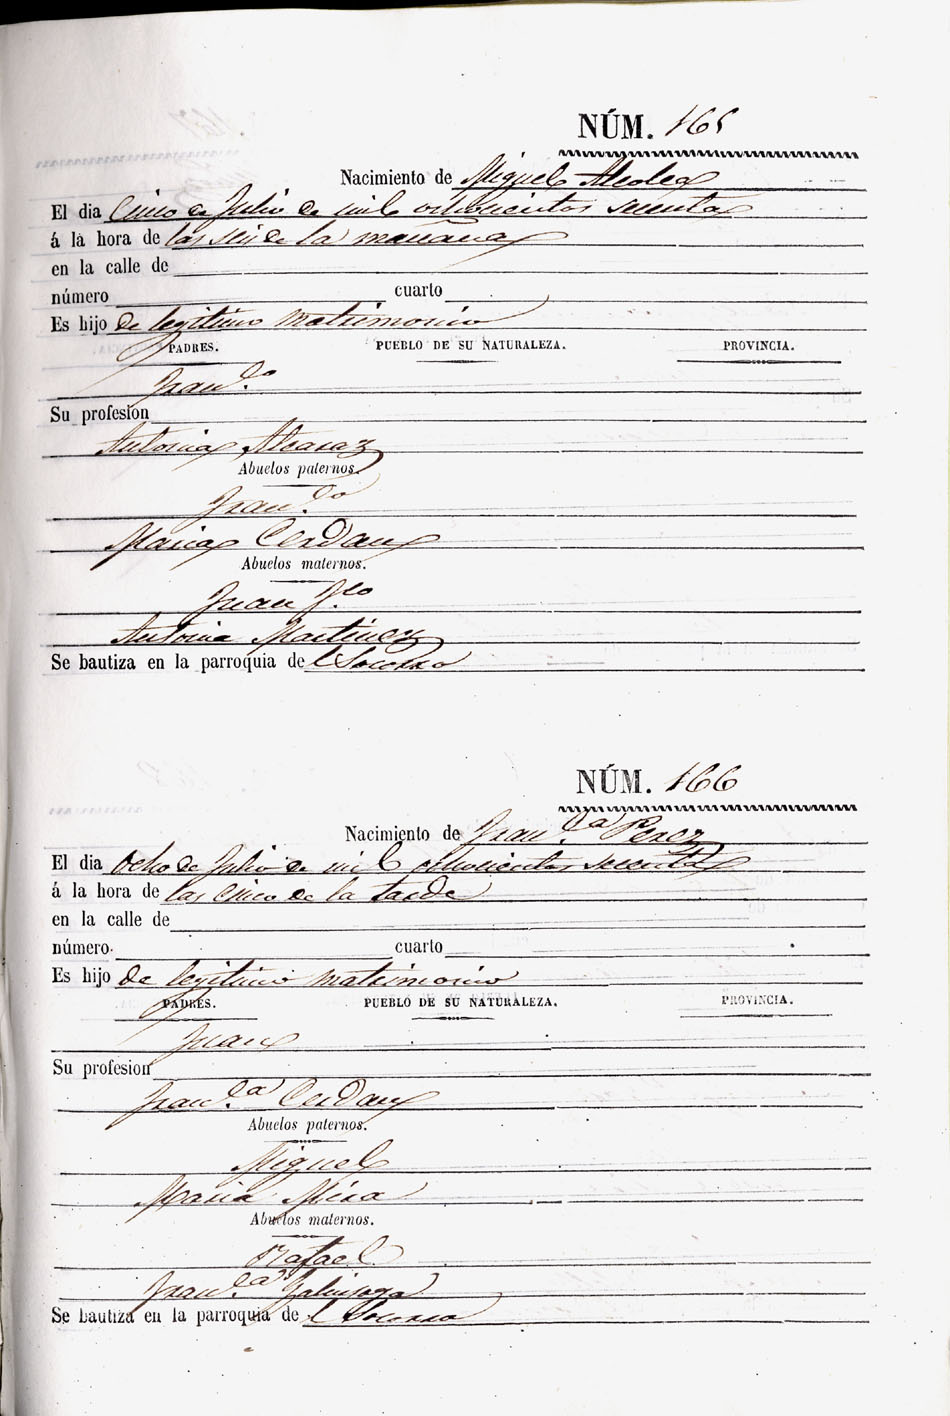 NÚM. 165
Nacimiento de Miguel Alcolea
El dia Cinco de Julio de mil ochocientos secenta
á la hora de las seis de la mañana
en la calle de
número cuarto
Es hijo de legitimo matrimonio
PADRES. PUEBLO DE SU NATURALEZA. PROVINCIA.
Fran.do
Su profesion
Antonia Alcaraz
Abuelos paternos.
Fran.do
Maria Cerdan
Abuelos maternos.
Juan
Antonia Martinez
Se bautiza en la parroquia de l Socorro
NÚM. 166
Nacimiento de Fran.ca Perez
El dia Ocho de Julio de mil ochocientos secenta
á la hora de las cinco de la tarde
en la calle de
número cuarto
Es hijo de legitimo matrimonio
PADRES. PUEBLO DE SU NATURALEZA. PROVINCIA.
Juan
Su profesion
Fran.ca Cerdan
Abuelos paternos.
Miguel
Maria Mira
Abuelos maternos.
Rafael
Fran.ca
Se bautiza en la parroquia de l Socorro